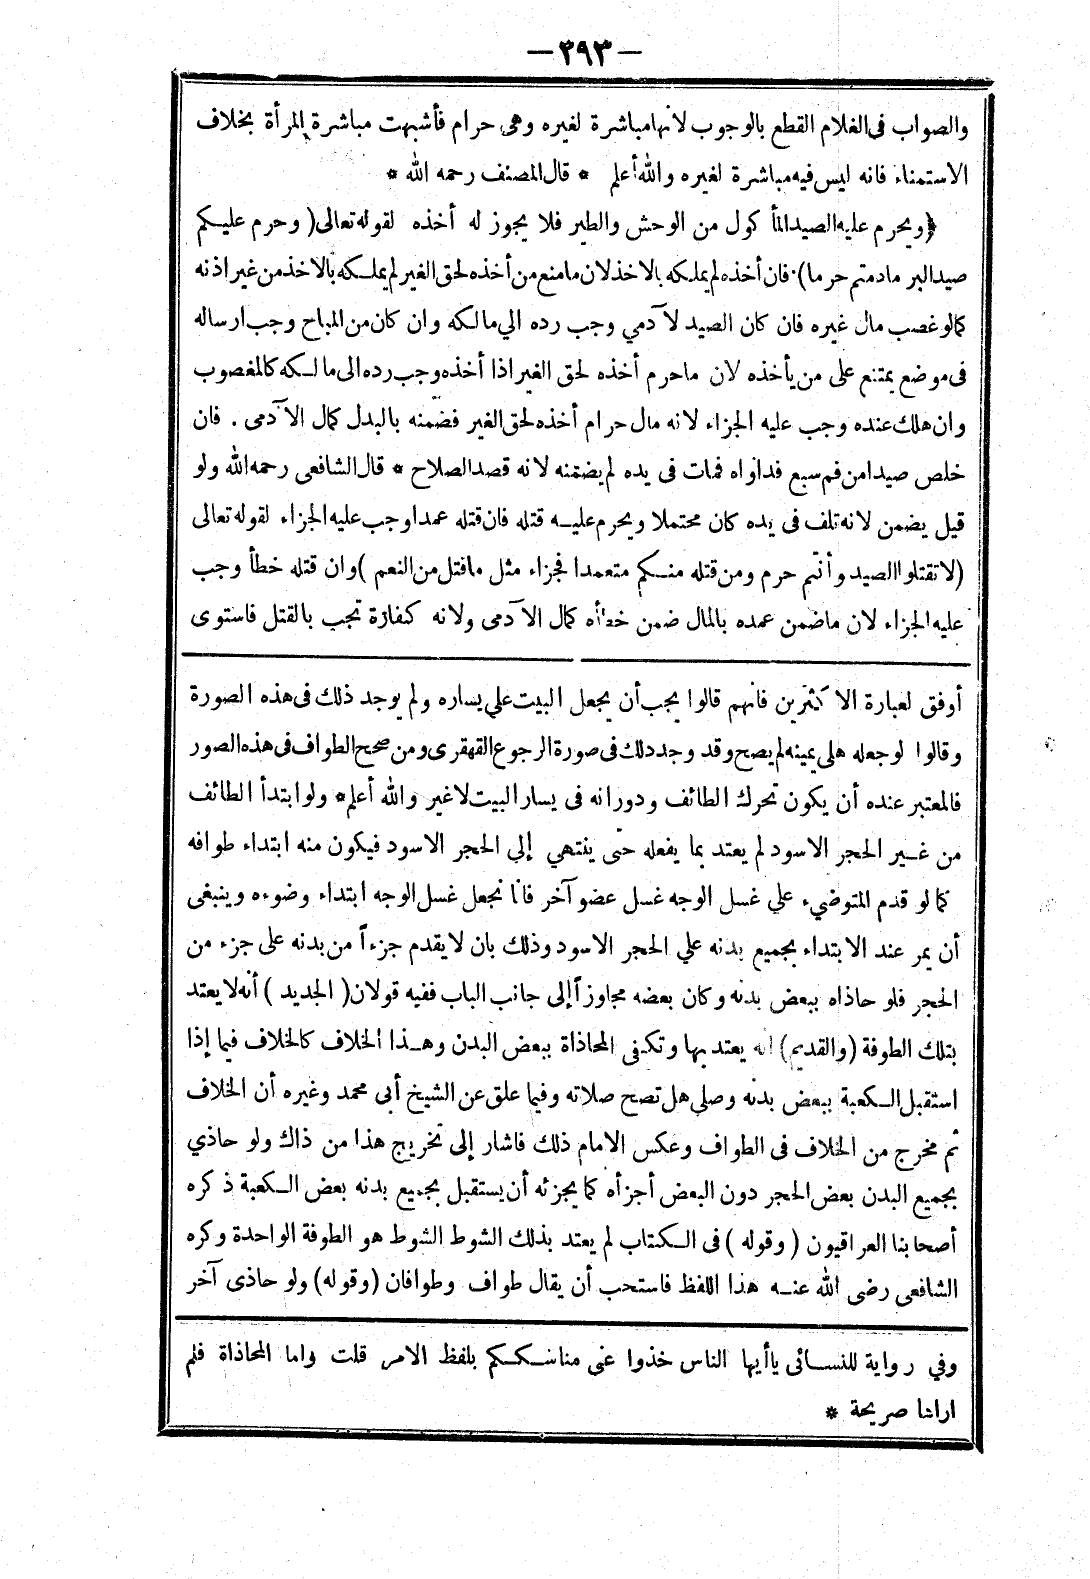 — ٢٩٣ —
والصواب فى الغلام القطع بالوجوب لانها مباشرة لغيره وهى حرام فأشبهت مباشرة المرأة بخلاف
الاستمناء فانه ليس فيه مباشرة لغيره والله أعلم * قال المصنف رحمه الله *
﴿ويحرم عليه الصيد المأكول من الوحش والطير فلا يجوز له أخذه لقوله تعالى ( وحرم عليكم
صيد البر مادمتم حرما ) فان أخذه لم يملكه بالاخذ لان مامنع من أخذه لحق الغير لم يملكه بالاخذ من غير اذنه
كما لو غصب مال غيره فان كان الصيد لآدمي وجب رده الي مالكه وان كان من المباح وجب ارساله
فى موضع يمتنع على من يأخذه لان ماحرم أخذه لحق الغير اذا أخذه وجب رده الى مالكه كالمغصوب
وان هلك عنده وجب عليه الجزاء لانه مال حرام أخذه لحق الغير فضمنه بالبدل كمال الآدمى . فان
خلص صيدا من فم سبع فداواه فمات فى يده لم يضمنه لانه قصد الصلاح * قال الشافعى رحمه الله ولو
قيل يضمن لانه تلف فى يده كان محتملا ويحرم عليه قتله فان قتله عمدا وجب عليه الجزاء لقوله تعالى
( لاتقتلوا الصيد وأنتم حرم ومن قتله منكم متعمدا فجزاء مثل ماقتل من النعم ) وان قتله خطأ وجب
عليه الجزاء لان ماضمن عمده بالمال ضمن خطأه كمال الآدمى ولانه كفارة تجب بالقتل فاستوى
أوفق لعبارة الاكثرين فانهم قالوا يجب أن يجعل البيت علي يساره ولم يوجد ذلك فى هذه الصورة
وقالوا لو جعله هلى يمينه لم يصح وقد وجد ذلك فى صورة الرجوع القهقرى ومن صحح الطواف فى هذه الصور
فالمعتبر عنده أن يكون تحرك الطائف ودورانه فى يسار البيت لاغير والله أعلم * ولو ابتدأ الطائف
من غير الحجر الاسود لم يعتد بما يفعله حتى ينتهي إلي الحجر الاسود فيكون منه ابتداء طوافه
كما لو قدم المتوضيء علي غسل الوجه غسل عضو آخر فانا نجعل غسل الوجه ابتداء وضوءه وينبغى
أن يمر عند الابتداء بجميع بدنه علي الحجر الاسود وذلك بان لايقدم جزءاً من بدنه على جزء من
الحجر فلو حاذاه ببعض بدنه وكان بعضه مجاوزاً إلى جانب الباب ففيه قولان ( الجديد ) أنه لايعتد
بتلك الطوفة ( والقديم ) انه يعتد بها وتكفى المحاذاة ببعض البدن وهذا الخلاف كالخلاف فيما إذا
استقبل الكعبة ببعض بدنه وصلي هل تصح صلاته وفيما علق عن الشيخ أبى محمد وغيره أن الخلاف
ثم مخرج من الخلاف فى الطواف وعكس الامام ذلك فاشار إلى تخريج هذا من ذاك ولو حاذي
بجميع البدن بعض الحجر دون البعض أجزأه كما يجزئه أن يستقبل بجميع بدنه بعض الكعبة ذكره
أصحابنا العراقيون ( وقوله ) فى الكتاب لم يعتد بذلك الشوط الشوط هو الطوفة الواحدة وكره
الشافعى رضى الله عنه هذا اللفظ فاستحب أن يقال طواف وطوافان ( وقوله ) ولو حاذى آخر
وفي رواية للنسائى ياأيها الناس خذوا عنى مناسككم بلفظ الامر قلت واما المحاذاة فلم
ارها صريحة *